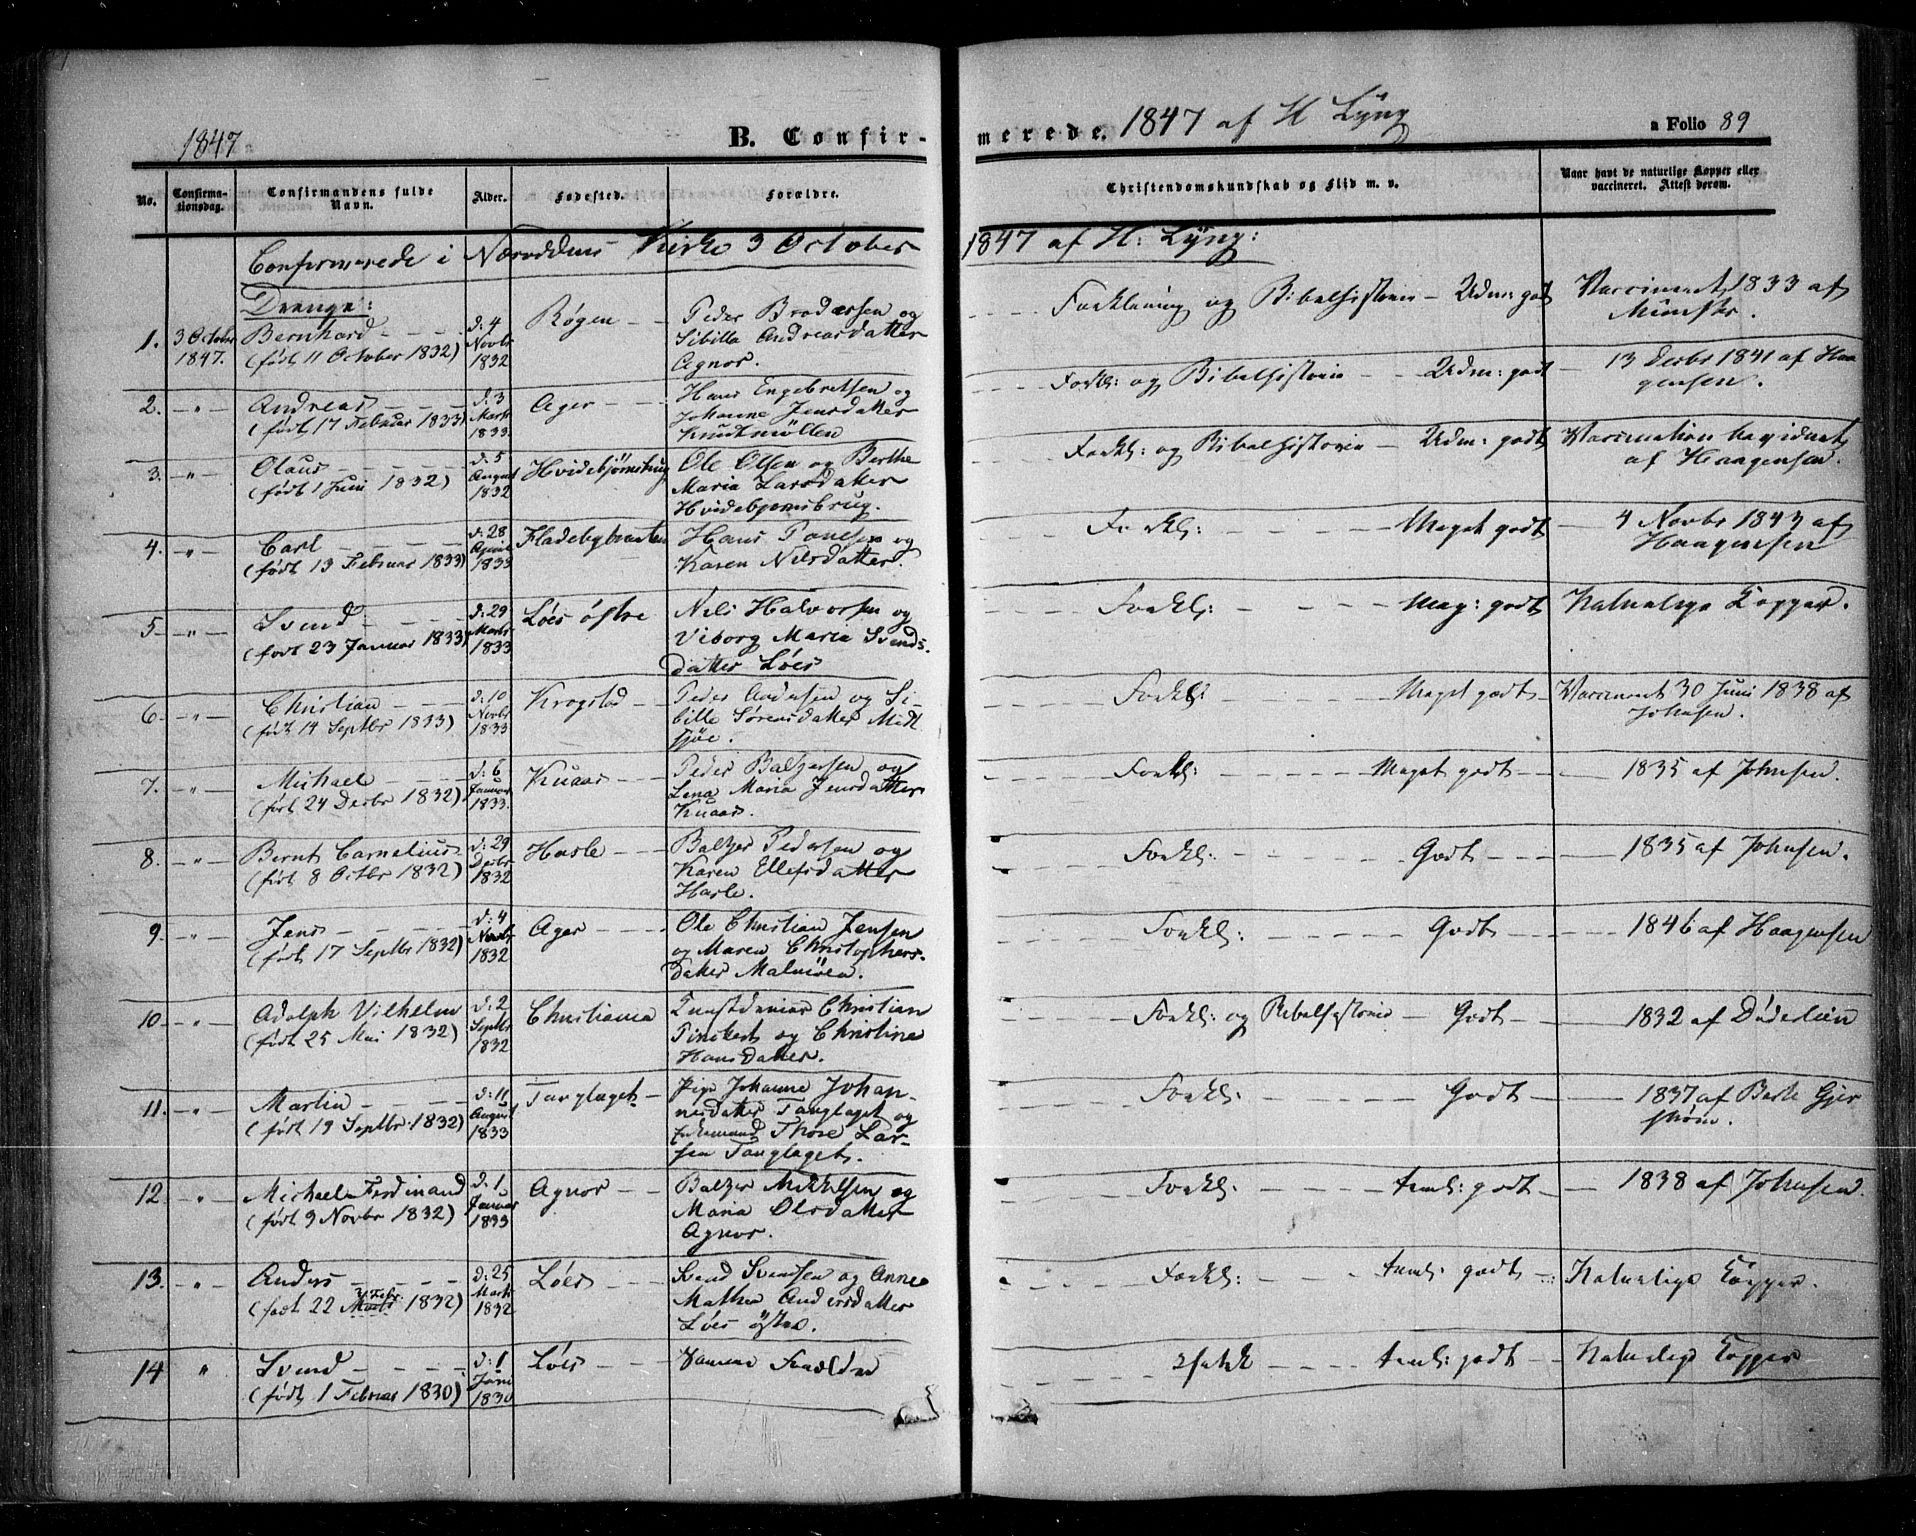 1847
B. Confir-
merede. 1847 af H Lÿng
a Folio 89
No.
Confirma-
tionsdag.
Confirmandens fulde
Navn.
Alder.
Fødested.
Forældre.
Christendomskundskab og Flid m. v.
Naar havt de naturlige Kopper eller
vaccineret. Attest derom.
Confirmerede i Næsoddens Kirke 3 October
1847 af H: Lÿng:
Drenge:
1. 3 October Bernhard d: 4 Røgen Peder Brodersen og Forklaring og Bibelhistorie - Udm: godt Vaccineret 1833 af
1847. (født 11 October 1832) Novbr Sibilla Andreasdatter Münster.
1832 Agnor.
2. -"- Andreas d: 3 Ager Hans Engebretsen og Forkl: og Bibelhistorie Udm: godt 13 Decbr 1841 af Haa
(født 17 Februar 1833) Marts Johanne Jensdatter gensen.
1833. Knudsmöllen
3. -"- Olaus d: 5 Hvidebjørnsbrug Ole Olsen og Berthe Forkl: og Bibelhistorie Udm: godt Vaccination bevidnet
(født 1 Juni 1832) August Maria Larsdatter af Haagensen.
1832 Hvidebjørnsbrug.
4. " Carl d: 28 Fladebybraaten Hans Tonesen og Forkl: Meget godt 4 Novbr 1843 af
(født 13 Februar 1833) April Karen Nilsdatter. Haagensen
1833
5. -"- Svend d: 29 Løes østre Nils Halvorsen og Forkl: Meg: godt Naturlige Kopper.
(født 23 Januar 1833) Marts Viborg Maria Svends-
1833 datter Løes
6. -"- Christian d: 10 Krogstad Peder Andersen og Si- Forkl: Meget godt Vaccineret 30 Juni 1838 af
(født 14 Septbr 1833) Novbr bille Sørensdatter Midt Johnsen.
1833 sjøe.
7. " Michael d: 6 Knaar Peder Baltzersen og Forkl: Meget godt 1835 af Johnsen.
(født 24 Decbr 1832) Januar Lena Maria Jensdatter
1833. Knaar.
8. " Bernt Cornelius d: 29 Hasle Baltzer Pedersen og Forkl: Godt 1835 af Johnsen.
(født 8 Octbr 1832) Decbr Karen Ellefsdatter
1832 Hasle.
9. " Jens d: 4 Ager Ole Christian Jensen Forkl: Godt 1846 af Haagensen
(født 17 Septbr 1832) Novbr og Maren Christophers-
1832 datter Malmöen.
10. " Adolph Vilhelm d: 2 Christiania Kunstdreier Christian Forkl: og Bibelhistorie Godt 1832 af Døderlein
(født 25 Mai 1832) Septbr Pinckert og Christine
1832 Hansdatter.
11. -"- Martin d: 11 Tanglaget Pige Johanne Johan- Forkl: Godt 1837 af Berte Gjer
(født 19 Septbr 1832) August nesdatter Tanglaget og strøm.
1833 Enkemand Thore Lar-
sen Tanglaget.
12 " Michael Ferdinand d: 1 Agnor Baltzer Mikkelsen og Forkl: Teml: godt 1838 af Johnsen.
(født 9 Novbr 1832) Januar Maria Olsdatter
1833 Agnor.
13. " Anders d: 25 Løes Svend Svendsen og Anne Forkl: Teml: godt Naturlige Kopper.
(født 22 Febr: 1832) Marts Mathea Andersdatter
1832 Løes østre.
14 " Svend d: 1 Løes Samme Forældre Teml: godt Naturlige Kopper
(født 1 Februar 1830) Juni
1830